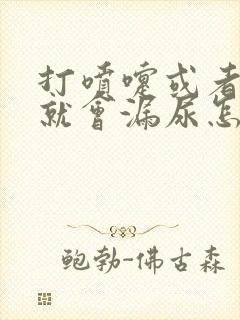 打噴嚏或者
就會漏尿怎
鲍勃-佛古森